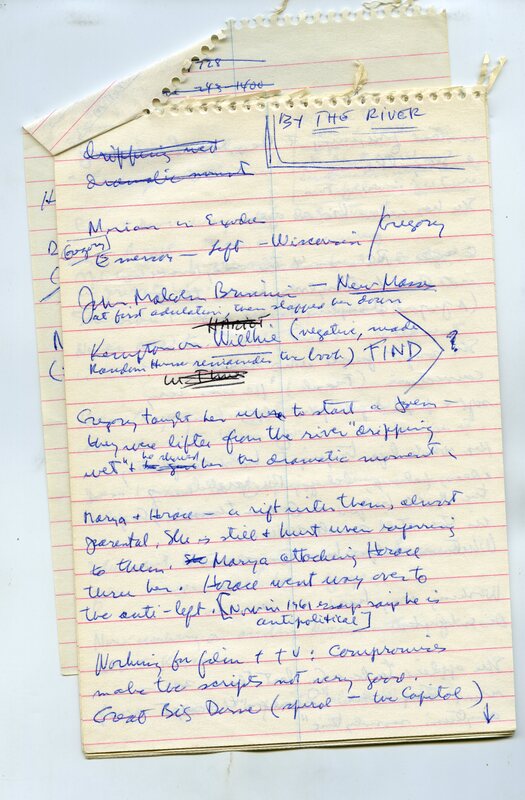 728
243-1400
BY THE RIVER
dripping wet
dramatic moment
Miriam in Exodus
(Gregory)
Emerson — left — Wisconsin / Gregory
John Malcolm Brinnin — New Masses
at first adulation, then slapped her down
Kempton on Willkie (negative, made
Random House remainder the book) FIND ?
Gregory taught her where to start a poem —
they were lifted from the river "dripping
wet" & he showed her the dramatic moment.
Marya & Horace — a rift with them, almost
parental. She is still hurt when referring
to them. Marya attacking Horace
thru her. Horace went way over to
the anti-left. [Now in 1961 essays says he is
antipolitical]
Working for film + TV: compromises
make the scripts not very good.
Great Big Dome (spiral — the Capitol)